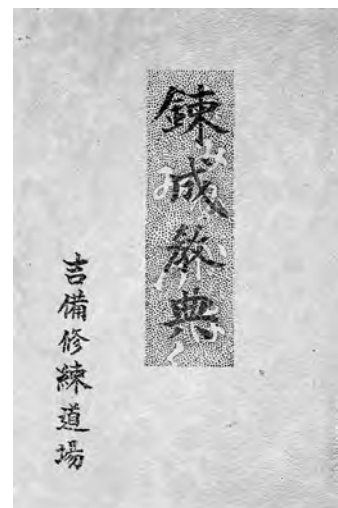 錬成教典
吉備修練道場